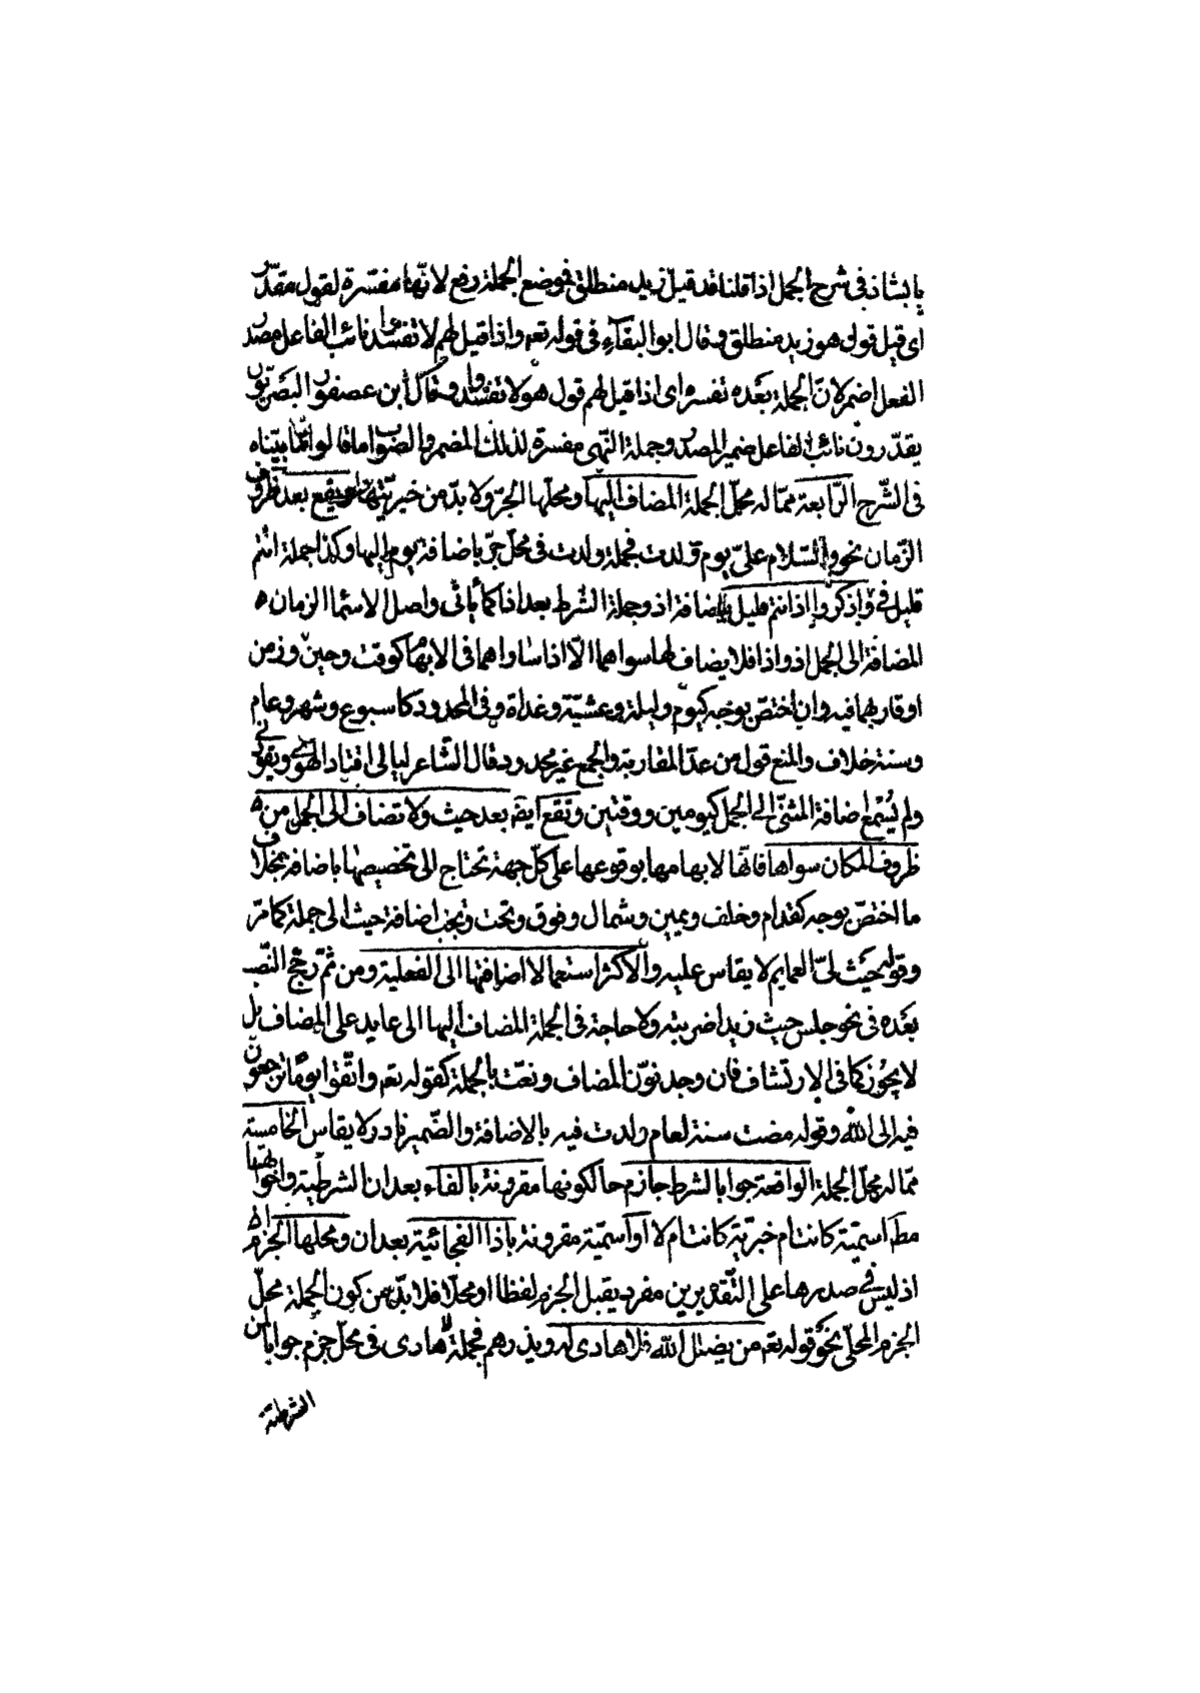 بابشاذ فى شرح الجمل اذا قلنا قد قيل زيد منطلق فموضع الجملة رفع لانّها مفسّرة لقول مقدّر
اى قيل قول هو زيد منطلق وقال ابوا البقآء فى قوله تعم واذا قيل لهم لا تفسدوا نائب الفاعل مصدر
الفعل اضمر لانّ الجملة بعده تفسره اى اذا قيل لهم قول هو لا تفسدوا وقال ابن عصفور البصريّون
يقدّرون نائب الفاعل ضمير المصدر وجملة النّهى مفسرة لذلك المضمر والصّواب ما قالوا لما بيّناه
فى الشّرح الرّابعة ممّا له محلّ الجملة المضاف اليها ومحلّها الجرّ ولا بدّ من خبريّتها وتقع بعد ظروف
الزّمان نحو والسّلام علىّ يوم ولدت فجملة ولدت فى محلّ جرّ باضافة يوم اليها وكذا جملة انتم
قليل فى واذكروا اذ انتم قليل باضافة اذ وجملة الشّرط بعد اذا كما يأتى واصل الاسما الزمان
المضافة الى الجمل اذ واذا فلا يضاف لها سواهما الّا اذا ساواهما فى الابهام كوقت وحين وزمن
او قاربهما فيه وان اختصّ بوجه كيوم وليلة وعشيّة وغداة وفى المحدود كاسبوع وشهر وعام
وسنة خلاف والمنع قول من عدّ المقاربة والجمع غير محدود قال الشّاعر ليالى اقتاد الهوى ويقودنى
ولم يُسمع اضافة المثنّى الى الجمل كيومين ووقتين وتقع ايضَ بعد حيث ولا تضاف الى الجمل من
ظروف المكان سواها فانّها لابهامها بوقوعها على كلّ جهة تحتاج الى تخصيصها باضافة بخلاف
ما اختصّ بوجه كقدام وخلف ويمين وشمال وفوق وتحت وتجب اضافة حيث الى جملة كما مرّ
وقوله حيث لىّ العمايم لا يقاس عليه والاكثر استعمالا اضافتها الى الفعلية ومن ثمّ رجّح النّصب
بعده فى نحو جلس حيث زيدا ضربته ولا حاجة فى الجملة المضاف اليها الى عايد على المضاف بل
لا يجوز كما فى الارتشاف فان وجد نوّن المضاف ونعت بالجملة كقوله تعم واتّقوا يومًا ترجعون
فيه الى الله وقوله مضت سنة لعام ولدت فيه بالاضافة والضّمير نادر ولا يقاس الخامسة
ممّا له محلّ الجملة الواقعة جوابا لشرط جازم حالكونها مقرونة بالفاء بعد ان الشرطيّة واخواتها
مطَ اسميّة كانت ام خبريّة كانت ام لا او اسميّة مقرونة باذا الفجائيّة بعد ان ومحلها الجزم
اذ ليس فى صدرها على التّقديرين مفرد يقبل الجزم لفظا او محلّا فلا بدّ من كون الجملة محلّ
الجزم المحلّى نحو قوله تعم من يضلل الله فلا هادى له ويذرهم فجملة لا هادى فى محلّ جزم جوابا لمن
الشرطيّة